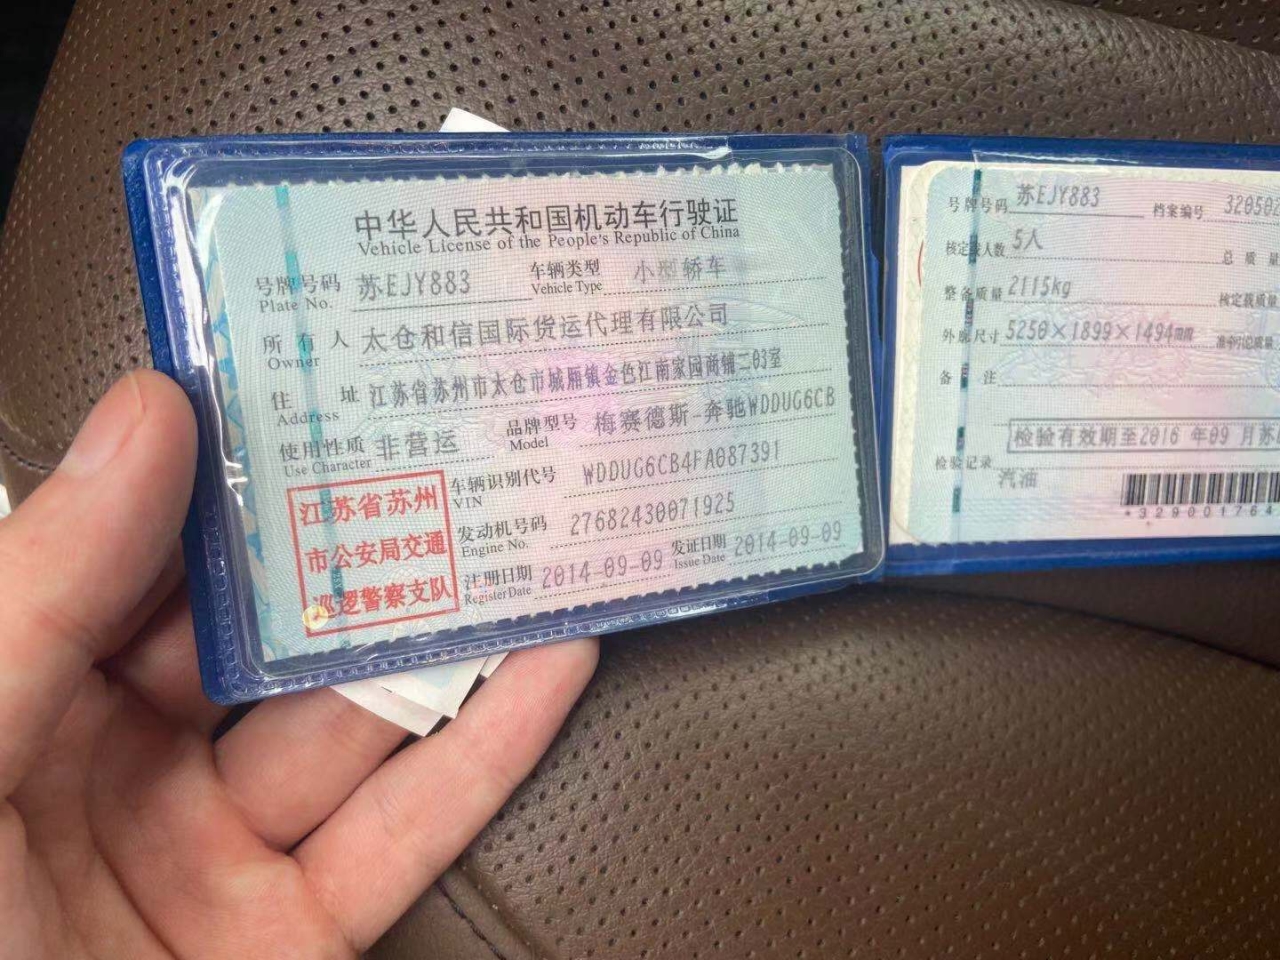 中华人民共和国机动车行驶证
Vehicle License of the People's Republic of China
号牌号码 苏EJY883 车辆类型 小型轿车
Plate No. Vehicle Type
所有人 太仓和信国际货运代理有限公司
Owner
住址 江苏省苏州市太仓市城厢镇金色江南家园商铺二03室
Address
使用性质 非营运 品牌型号 梅赛德斯-奔驰WDDUG6CB
Use Character Model
江苏省苏州
市公安局交通
巡逻警察支队
车辆识别代号 WDDUG6CB4FA087391
VIN
发动机号码 27682430071925
Engine No.
注册日期 2014-09-09 发证日期 2014-09-09
Register Date Issue Date
号牌号码 苏EJY883 档案编号 320502
核定载人数 5人 总质量
整备质量 2115kg 核定载质量
外廓尺寸 5250×1899×1494mm 准牵引总质量
备注
检验有效期至2016年09月苏
检验记录
汽油
*329001764